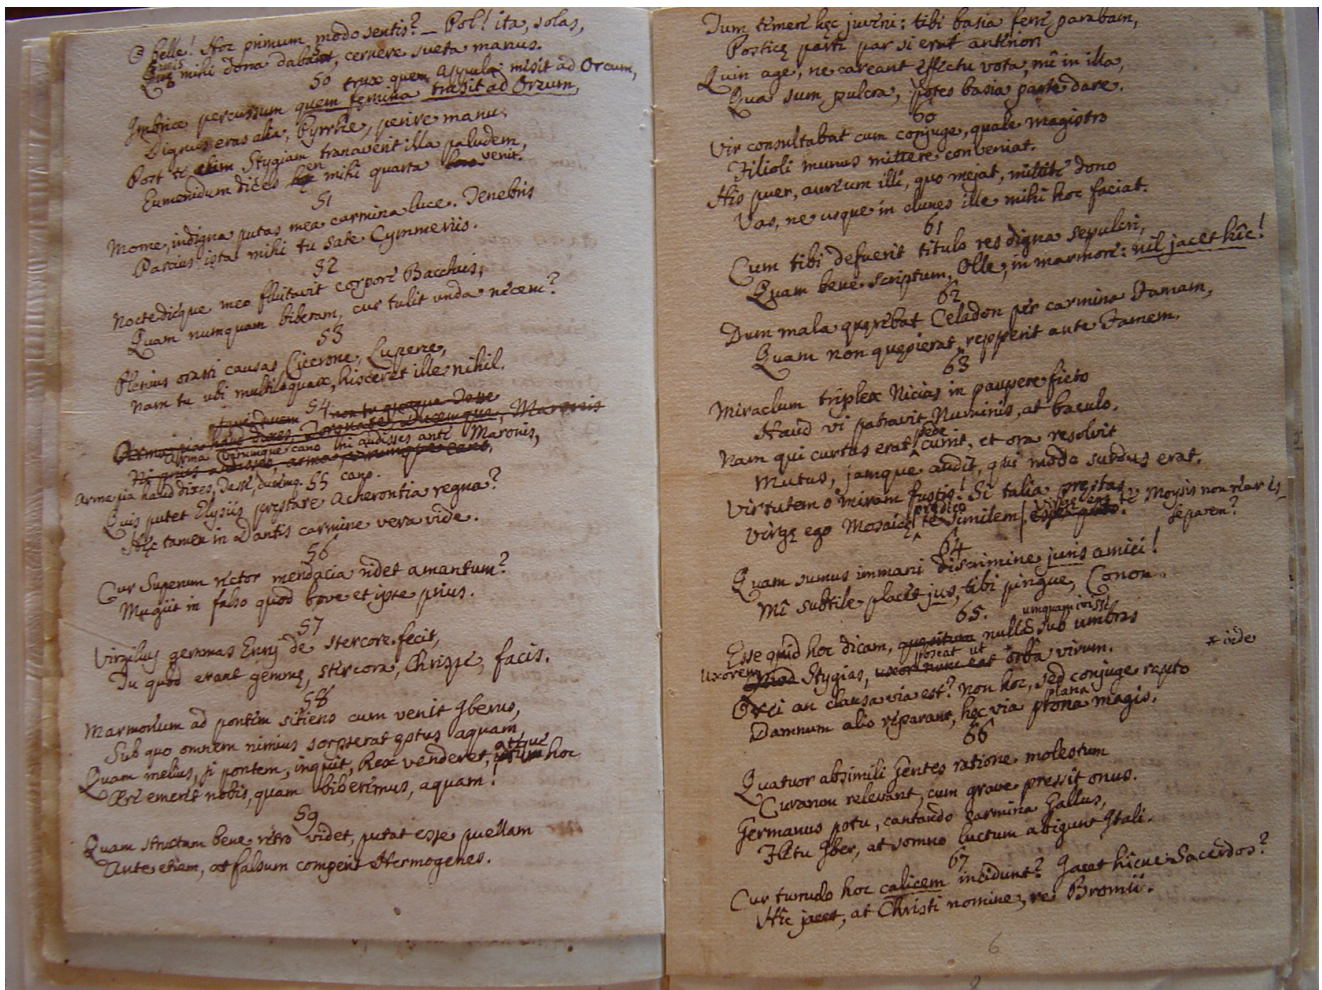 O belle! Hoc primum modo sentis? _ Pol! ita, solas,
Quae mihi dona dabant, cernere sueta manus.
50
trux quem Appula misit ad Orcum,
Imbrice percussum quem femina trusit ad Orcum,
Dignus eras alia, Pyrrhe, perire manu.
Post te etiam Stygiam tranaverit illa paludem,
Eumenidum dices mihi quarta venit.
51
Mome, indigna putas mea carmina luce. Tenebris
Parcius ista mihi tu sate Cymmeriis.
52
Nocte dieque meo fluitavit corpore Bacchus;
Quam numquam biberam, cur tulit unda necem?
53
Plenius orasti causas Cicerone, Luperce,
Nam tu ubi multiloquax, hisceret ille nihil.
54
Arma virumque cano ibi audisses ante Maronis,
cano.
55
Quis putet Elysiis praestare Acherontia regna?
Haec tamen in Dantis carmine vera vide.
56
Cur Superum rector mendacia ridet amantum?
Mugiit in falso quod bove et ipse prius.
57
Virgilius gemmas Ennj de stercore fecit,
Tu quod erant gemmę, stercora, facis.
58
Marmorium ad pontem sitiens cum venit Iberus,
Sub quo omnem nimius sorpserat ęstus aquam
Quam melius, si pontem, inquit, Rex venderet, atque hoc
Ære emerit nobis, quam biberimus, aquam!
59
Quam structam bene retro videt, putat esse puellam
Ante etiam, at falsum comperit Hermogenes.
Tum temere hęc juveni: tibi basia ferre parabam,
Posticę parti par si erat anterior
Quin age, ne careant effectu vota, mî in illa,
Qua sum pulcra, potes basia parte dare.
60
Vir consultabat cum conjuge, quale magistro
Filioli munus mittere conveniat.
His puer, aureum illi, quo mejat, mittite dono
Vas, ne usque in clunes ille mihi hoc faciat.
61
Cum tibi defuerit titulo res digna sepulcri,
Quam bene scriptum, Olle, in marmore: nil jacet hîc!
62
Dum mala quęrebat Celadon per carmina Famam,
Quam non quęsierat, repperit ante Famem.
63
Miraclum triplex Nicias in paupere ficto
Haud vi patravit Numinis, at baculo.
Nam qui curtus erat pede currit, et ora resolvit
Mutus, jamque audit, qui modo surdus erat.
Virtutem o miram fustis! Si talia pręstas
Virgę ego Mosaicę te similem Moysis non rear
separem?
64
Quam sumus immani discrimine juris amici!
Mî subtile placet jus, tibi pingue, Conon.
65.
umquam
Esse quid hoc dicam, nullę sub umbras
poscat ut
uxorem Stygias, orba virum. * vide
Orci an clausa via est? non hoc, sed conjuge rapto
plana
Damnum alio reparant, hęc via prona magis.
66
Quatuor absimili gentes ratione molestum
Curarum relevant, cum grave pressit onus.
Germanus potu, cantando carmina Gallus,
Fletu Iber, at somno luctum abigunt Itali.
67
Cur tumulo hoc calicem incidunt? Jacet hicne Sacerdos?
Hic jacet, at Christi nomine, re Bromii.
6